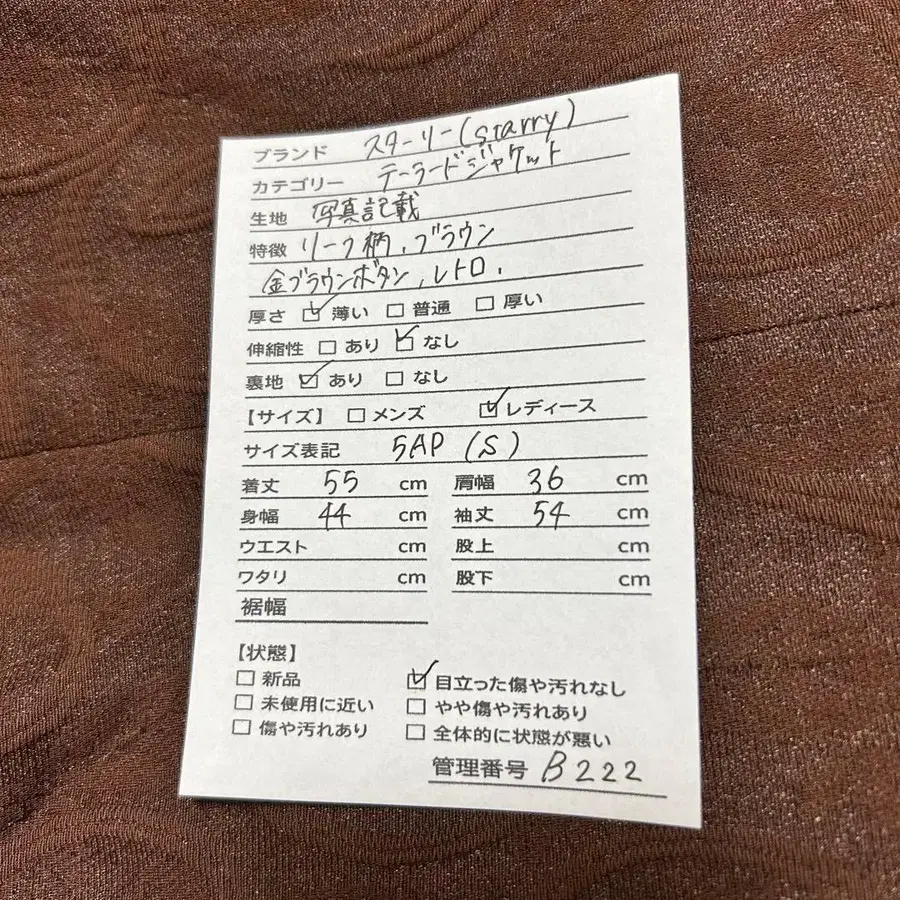 ブランド スターリー(starry)
カテゴリー テーラードジャケット
生地 写真記載
特徴 リーフ柄、ブラウン
金ブラウンボタン、レトロ、
厚さ ☑ 薄い □ 普通 □ 厚い
伸縮性 □ あり ☑ なし
裏地 ☑ あり □ なし
【サイズ】 □ メンズ ☑ レディース
サイズ表記 5AP (S)
着丈 55 cm 肩幅 36 cm
身幅 44 cm 袖丈 54 cm
ウエスト cm 股上 cm
ワタリ cm 股下 cm
裾幅
【状態】
□ 新品 ☑ 目立った傷や汚れなし
□ 未使用に近い □ やや傷や汚れあり
□ 傷や汚れあり □ 全体的に状態が悪い
管理番号 B222